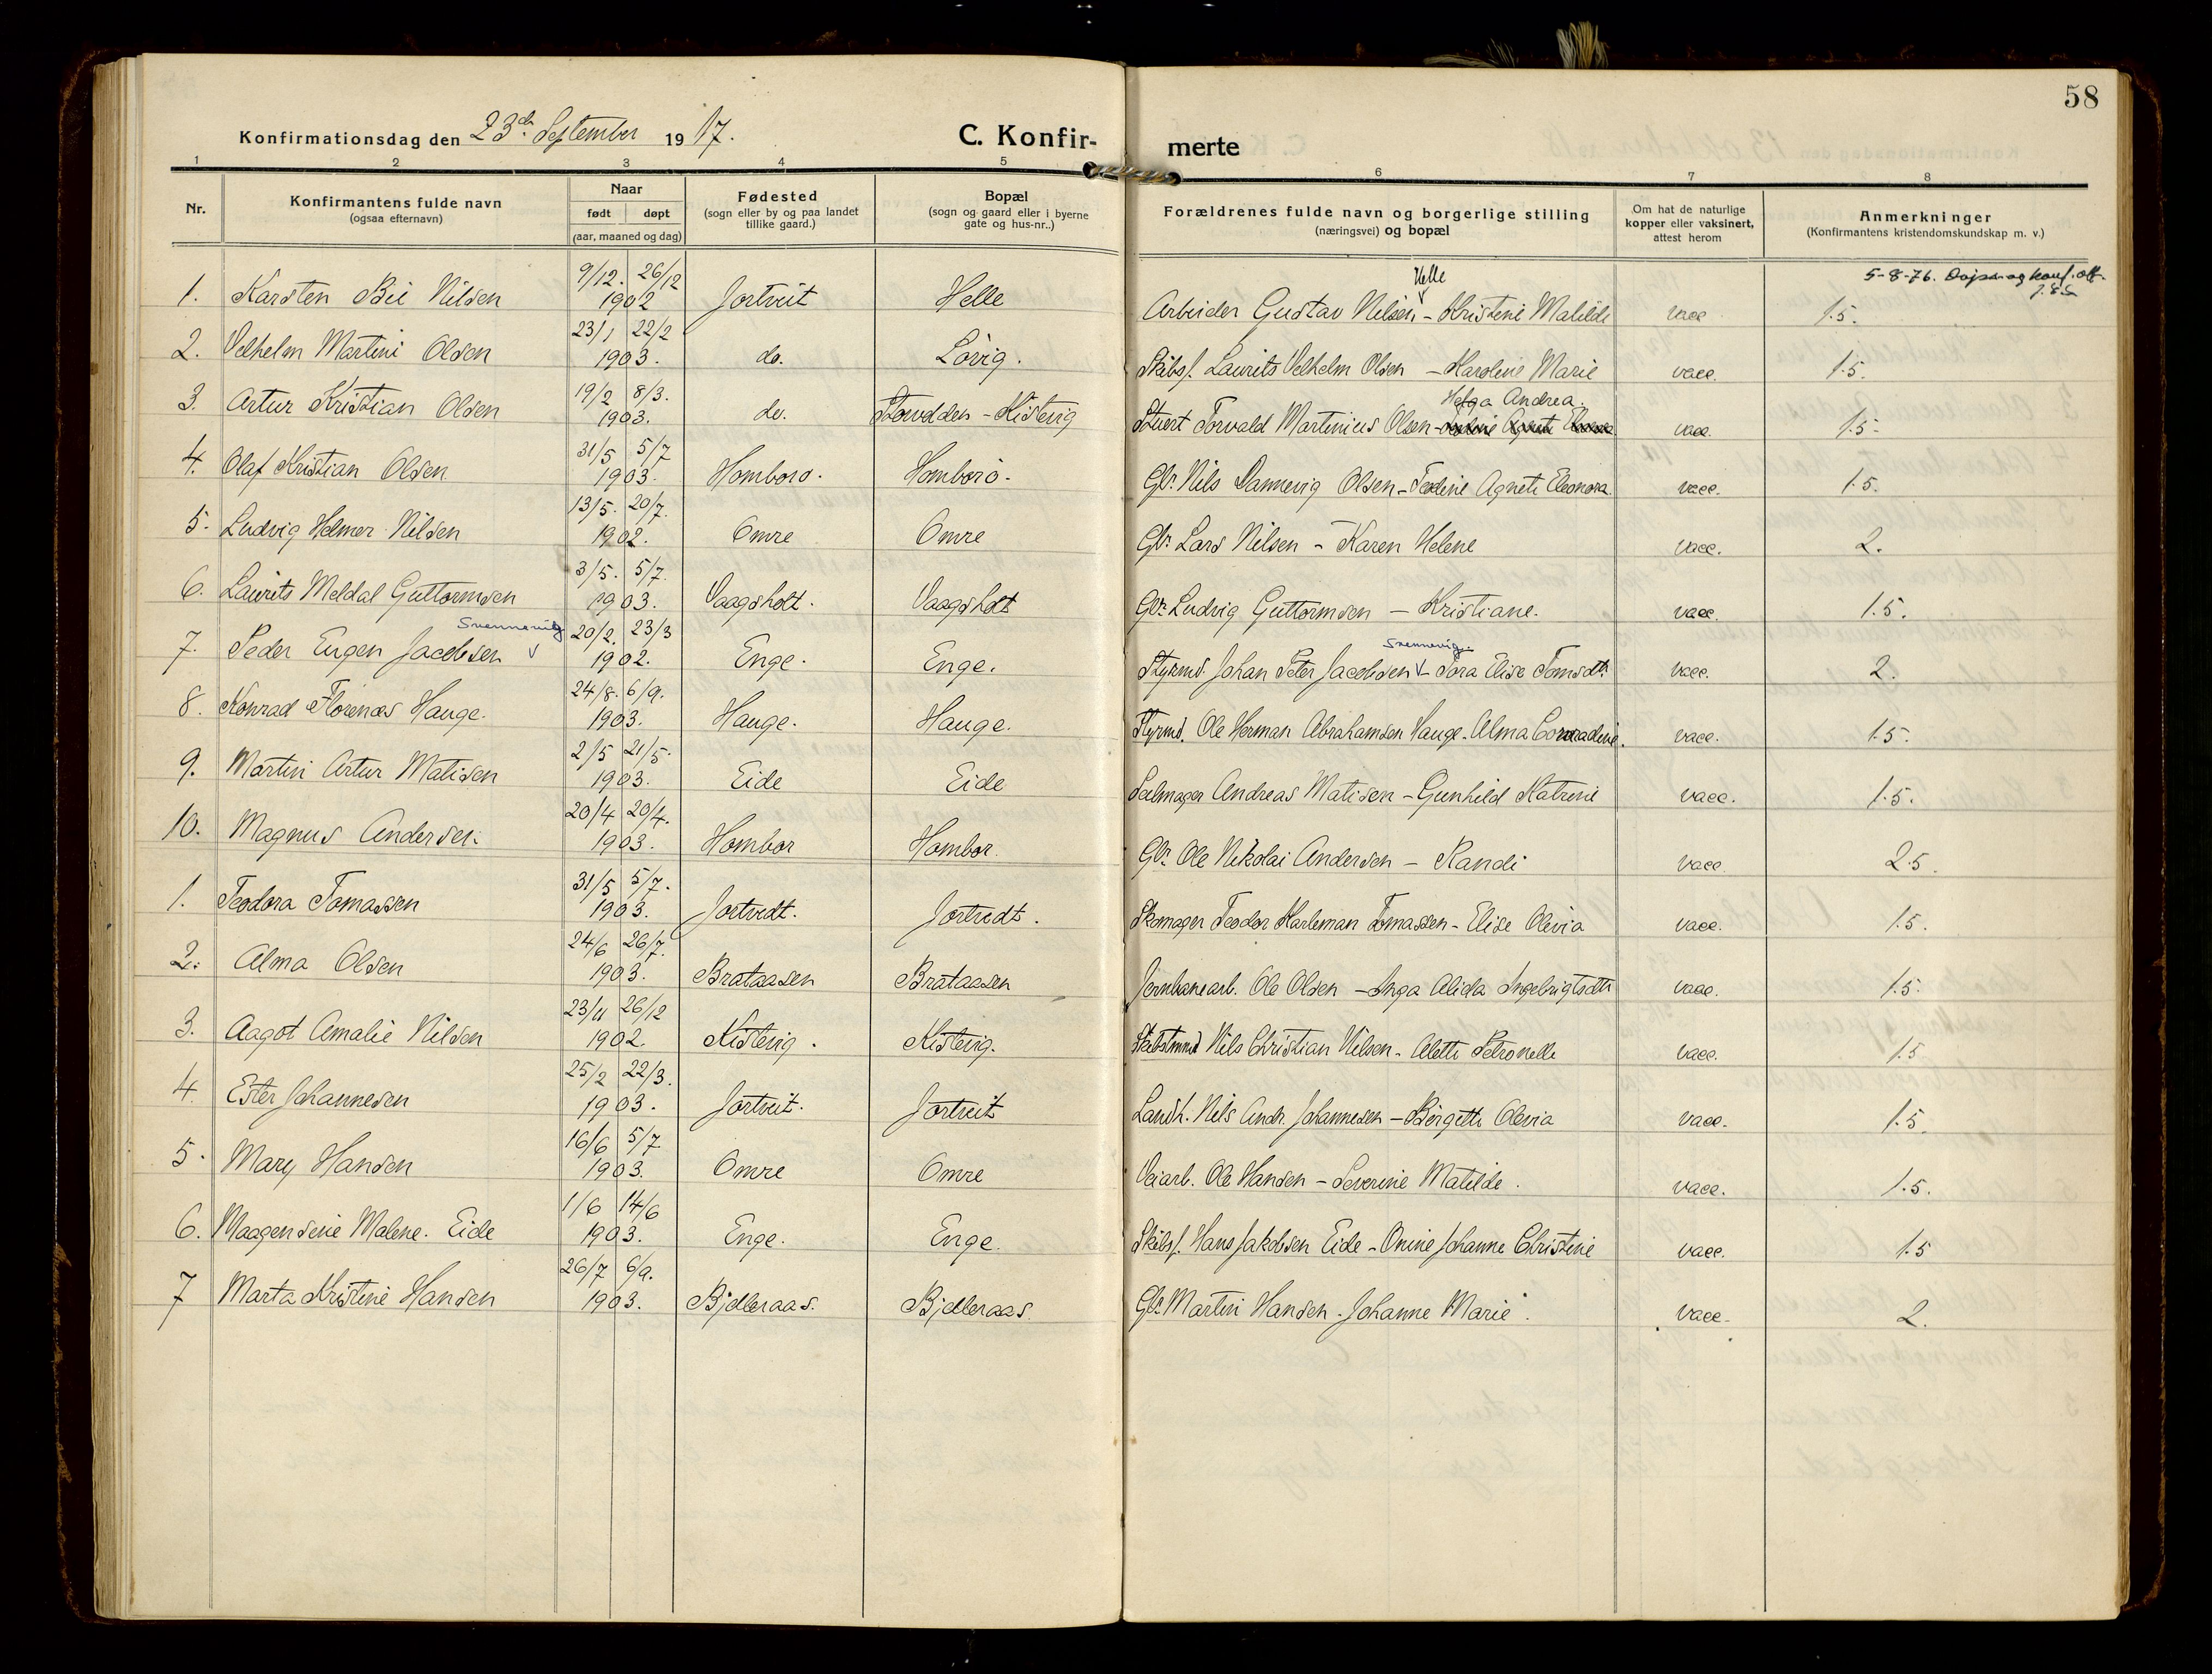 58
Konfirmationsdag den 23de September 1917. C. Konfir- merte
1 2 3 4 5 6 7 8
Nr. Konfirmantens fulde navn (ogsaa efternavn) Naar født døpt (aar, maaned og dag) Fødested (sogn eller by og paa landet tillike gaard.) Bopæl (sogn og gaard eller i byerne gate og hus-nr..) Forældrenes fulde navn og borgerlige stilling (næringsvei) og bopæl Om hat de naturlige kopper eller vaksinert, attest herom Anmerkninger (Konfirmantens kristendomskundskap m. v.)
5-8-76. Dåps- og konf. att.
Helle
1. Karsten Bie Nilsen 9/12. 26/12 1902 Jortveit Helle Arbeider Gustav Nilsen - Kristine Matilde vacc 1.5.
2. Velhelm Martini Olsen 23/1 22/2 1903. do. Lövig. Skibsf. Laurits Velhelm Olsen - Karoline Marie vacc. 1.5.
Helga Andrea.
3. Artur Kristian Olsen 19/2 8/3. 1903. do. - Kistevig Stuert Torvald Martinius Olsen - vacc. 1.5.
4. Olaf Kristian Olsen 31/5 5/7 1903. Homborö. Homborö. Gbr. Nils Dannevig Olsen - Teoline Agnete Eleonora vacc. 1.5.
5. Ludvig Helmer Nilsen 13/5. 20/7. 1902. Omre Omre Gbr. Lars Nilsen - Karen Helene vacc. 2.
6. Laurits Meldal Guttormsen 3/5. 5/7. 1903. Vaagsholt. Vaagsholt Gbr. Ludvig Guttormsen - Kristiane. vacc. 1.5.
Svennevig Svennevig
7. Peder Eugen Jacobsen 20/2. 23/3 1902. Enge. Enge. Styrmd. Johan Peter Jacobsen - Tora Elise Tomsdtr. vacc. 2.
8. Konrad Florenæs Hauge. 24/8. 6/9. 1903. Hauge. Hauge. Styrmd. Ole Herman Abrahamsen Hauge. Alma Conradine. vacc. 1.5.
9. Martin Artur Matisen 2/5 21/5. 1903. Eide Eide Seilmager Andreas Matisen - Gunhild Katrine vacc. 1.5.
10. Magnus Andersen. 20/4 20/4. 1903. Hombor Hombor. Gbr. Ole Nikolai Andersen - Randi vacc. 2.5.
1. Teodora Tomassen 31/5 5/7. 1903. Jortvedt. Jortvedt. Skomager Teodor Karleman Tomassen - Elise Olivia vacc. 1.5.
2. Alma Olsen 24/6 26/7. 1903. Brataasen Brataasen Jernbanearb. Ole Olsen - Inga Alida Ingebrigtsdtr vacc. 1.5.
3. Aagot Amalie Nilsen 23/11 26/12 1902. Kistevig. Kistevig. Nils Christian Nilsen - Alette Petronelle vacc. 1.5
4. Ester Johannesen 25/2 22/3. 1903. Jortveit. Jortveit Landh. Nils Andr. Johannesen - Birgitte Olivia vacc. 1.5.
5. Mary Hansen 16/6 5/7 1903. Omre Omre Veiarb. Ole Hansen - Severine Matilde. vacc. 1.5.
6. Maagensine Malene. Eide 1/6 14/6 1903. Enge. Enge. Skibsf. Hans Jakobsen Eide - Onine Johanne Christine vacc. 1.5
7 Marta Kristine Hansen 26/7 6/9. 1903. Bjelleraas. Bjelleraas. Gbr. Martin Hansen. Johanne Marie. vacc. 2.